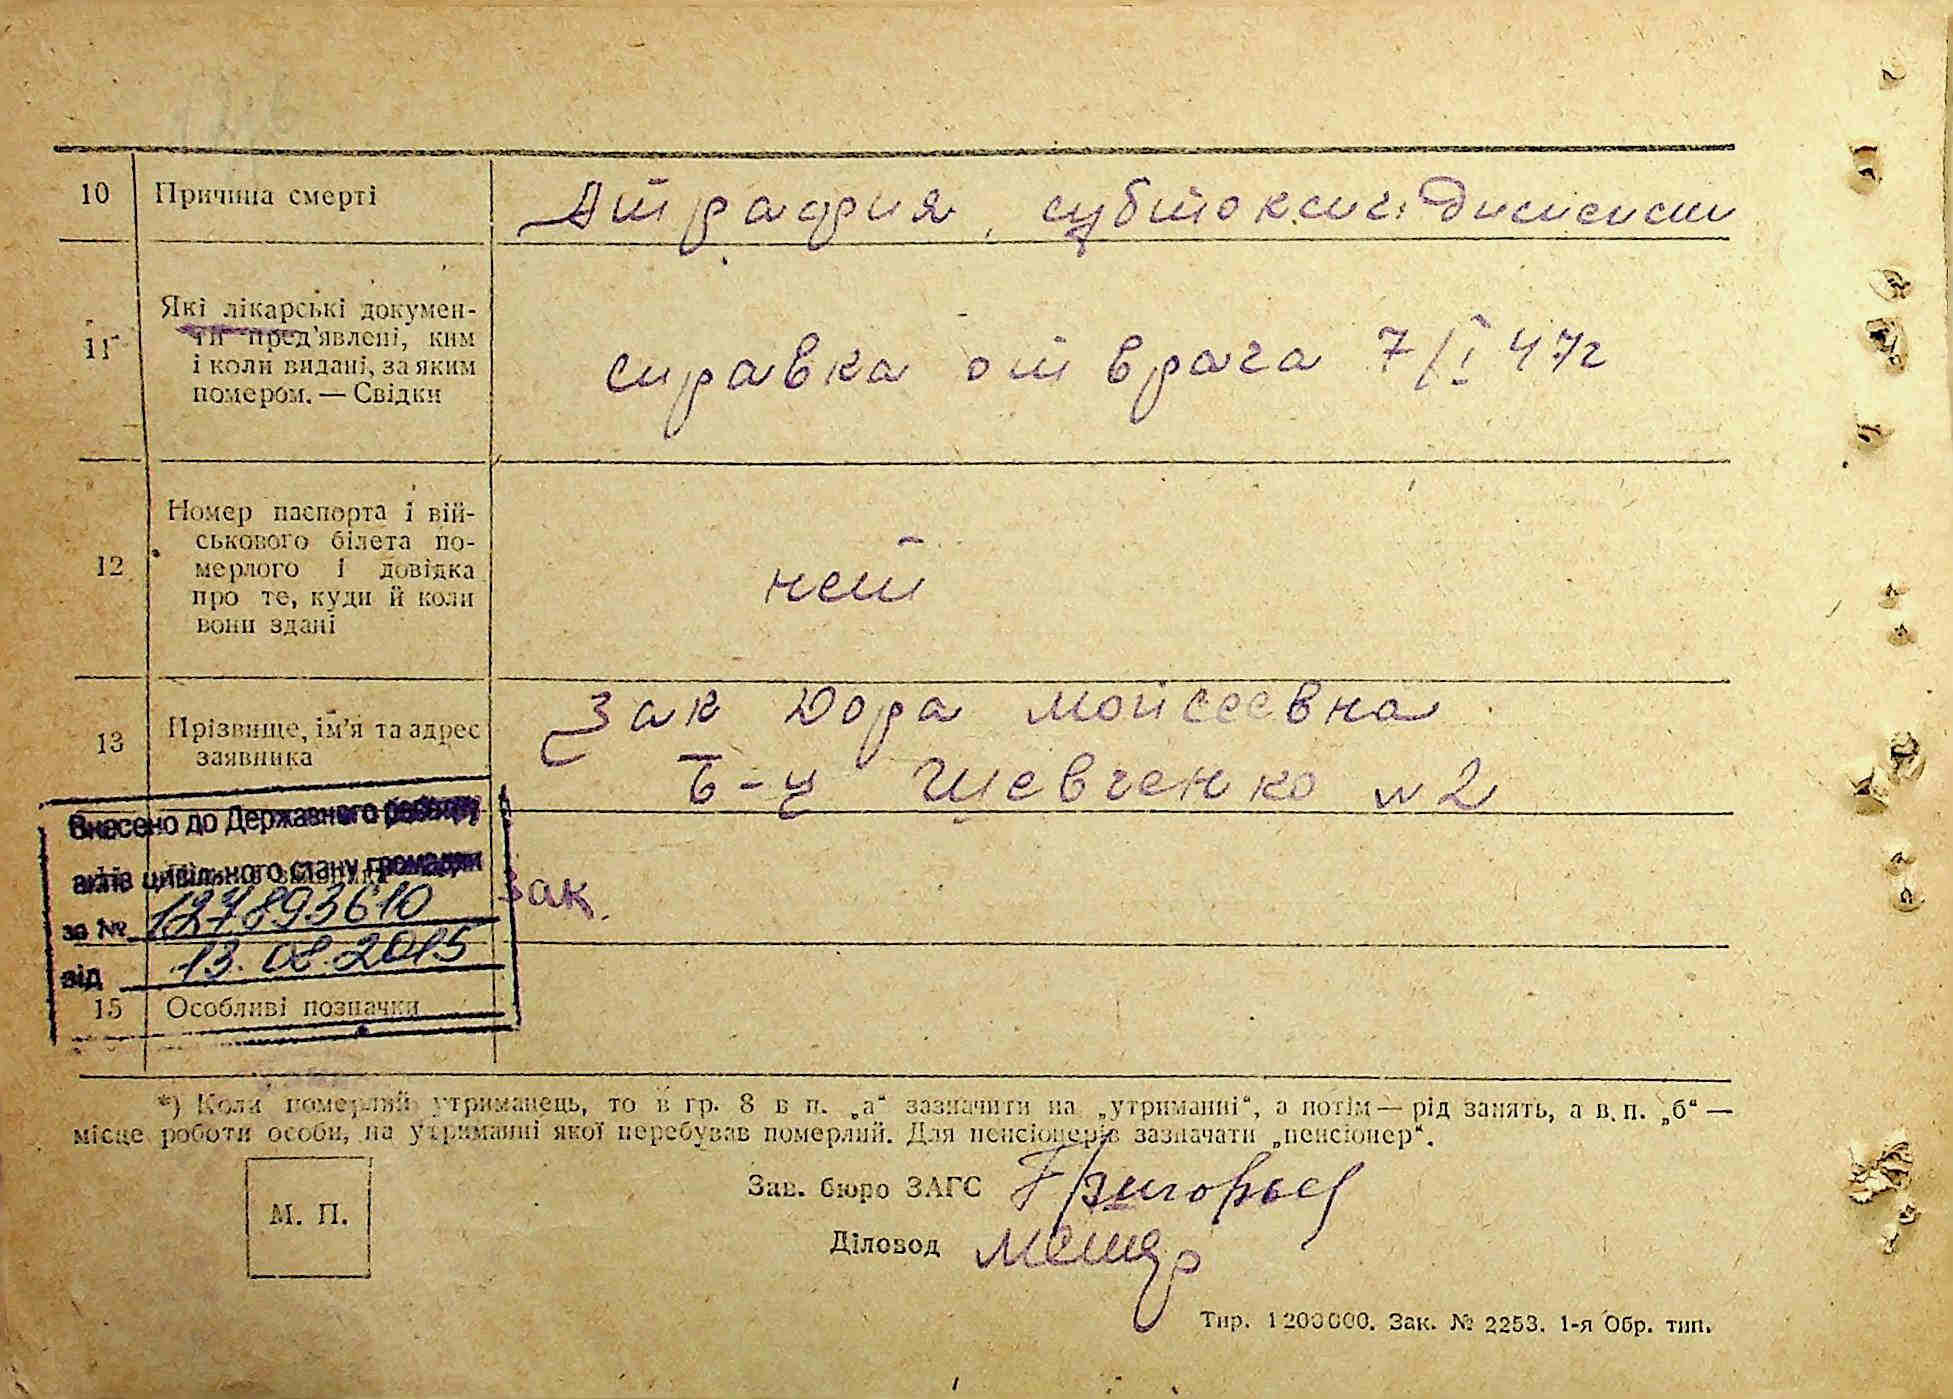 10 Причина смерті Атрафия, субтоксич. Диспепси
11 Які лікарські докумен-
ти пред'явлені, ким
і коли видані, за яким
помером. — Свідки
справка от врача 7/I 47г
12 Номер паспорта і вій-
ськового білета по-
мерлого і довідка
про те, куди й коли
вони здані
нет
13 Прізвище, ім'я та адрес
заявника
Зак Дора Мойсеевна
Б-ц Шевченко №2
Внесено до Державного реєстру
актів цивільного стану громадян
за № 127893610
від 13.08.2015
Зак.
15 Особливі позначки
*) Коли померлий утриманець, то в гр. 8 в п. „а“ зазначити на „утриманні“, а потім — рід занять, а в. п. „б“ —
місце роботи особи, на утриманні якої перебував померлий. Для пенсіонерів зазначати „пенсіонер“.
М. П.
Зав. бюро ЗАГС Григорьев
Діловод
Тир. 1200000. Зак. № 2253. 1-я Обр. тип.